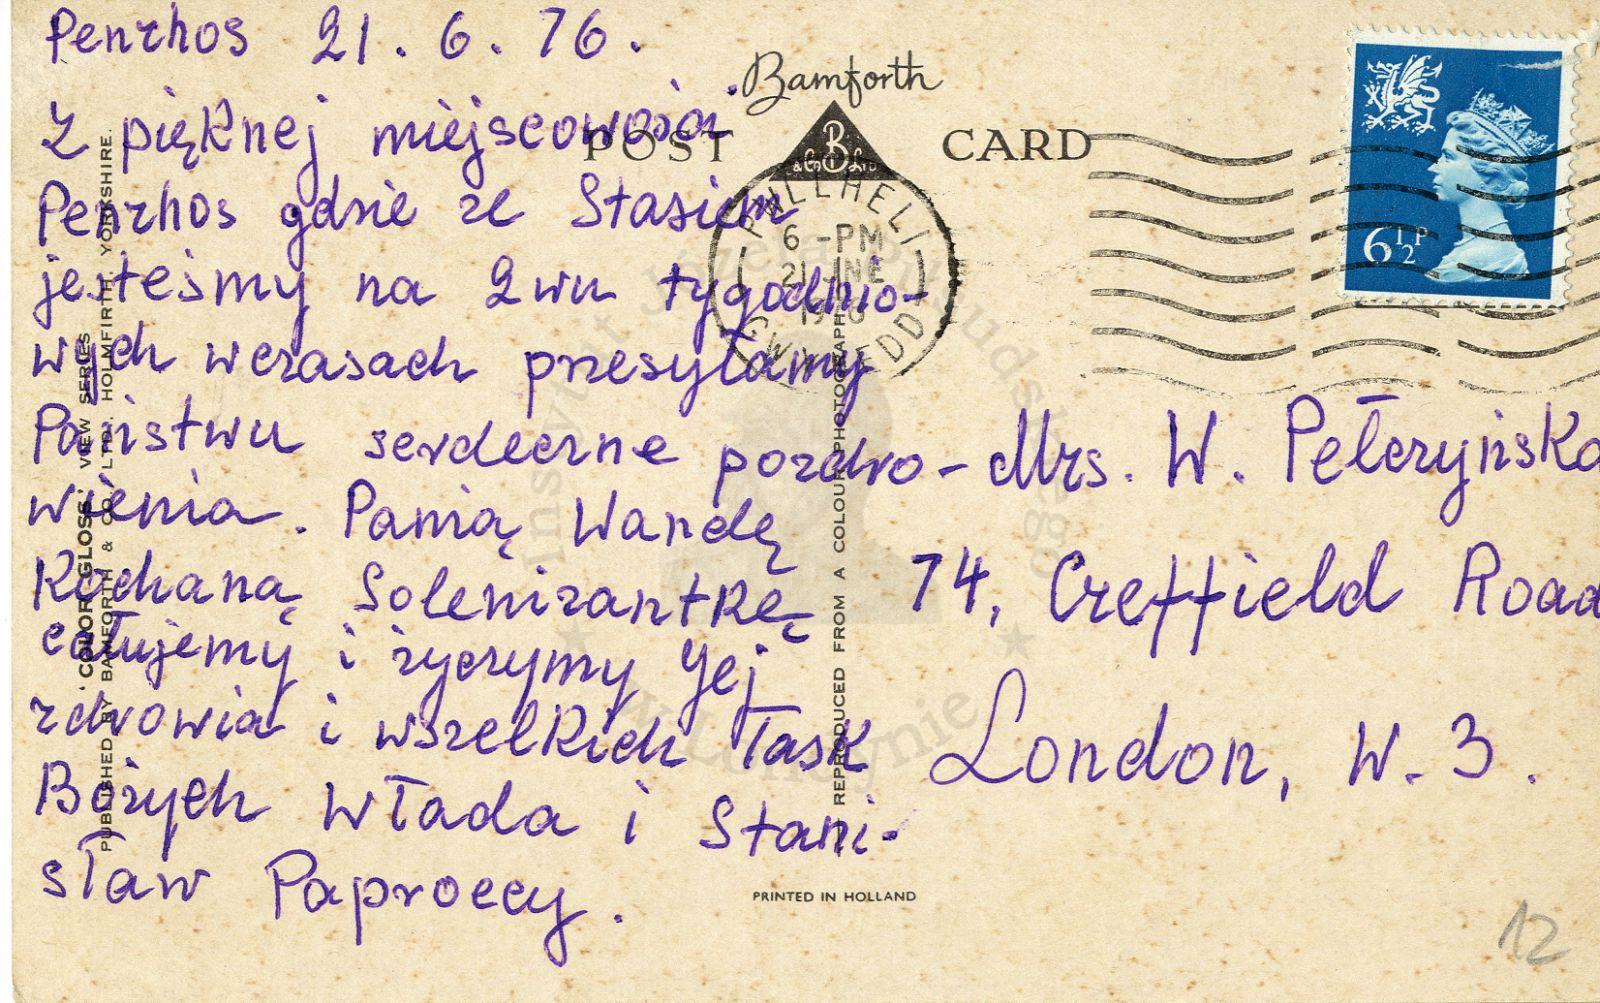 Penrhos 21.6.76.
Z pięknej miejscowości
Penrhos gdzie ze Stasiem
jesteśmy na 2wu tygodnio-
wych wczasach przesyłamy
Państwu serdeczne pozdro-
wienia. Panią Wandę
Kochaną Solenizantkę
całujemy i życzymy Jej
zdrowia i wszelkich Łask
Bożych Włada i Stani-
sław Paproccy.
Mrs. W. Pełczyńska
74, Creffield Road
London, W.3.
Bamforth
POST CARD
B
& Co Ltd
PWLLHELI
6-PM
21 JNE
1976
GWYNEDD
6½P
'COLOR GLOSS' VIEW SERIES
PUBLISHED BY BAMFORTH & CO. LTD. HOLMFIRTH, YORKSHIRE.
REPRODUCED FROM A COLOUR PHOTOGRAPH
PRINTED IN HOLLAND
Instytut Józefa Piłsudskiego
w Londynie
12